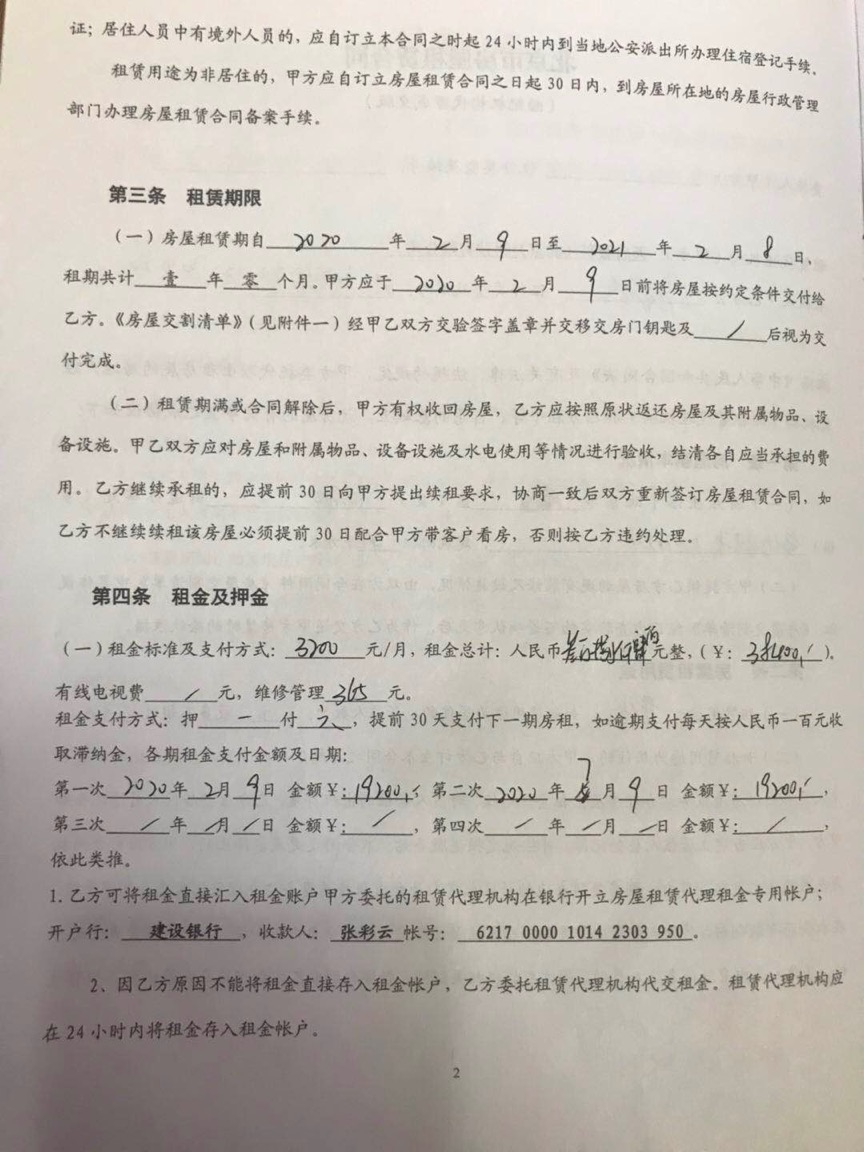 证；居住人员中有境外人员的，应自订立本合同之时起 24 小时内到当地公安派出所办理住宿登记手续。
租赁用途为非居住的，甲方应自订立房屋租赁合同之日起 30 日内，到房屋所在地的房屋行政管理
部门办理房屋租赁合同备案手续。
第三条 租赁期限
（一）房屋租赁期自 2020 年 2 月 9 日至 2021 年 2 月 8 日，
租期共计 壹 年 零 个月。甲方应于 2020 年 2 月 9 日前将房屋按约定条件交付给
乙方。《房屋交割清单》（见附件一）经甲乙双方交验签字盖章并交移交房门钥匙及 / 后视为交
付完成。
（二）租赁期满或合同解除后，甲方有权收回房屋，乙方应按照原状返还房屋及其附属物品、设
备设施。甲乙双方应对房屋和附属物品、设备设施及水电使用等情况进行验收，结清各自应当承担的费
用。乙方继续承租的，应提前 30 日向甲方提出续租要求，协商一致后双方重新签订房屋租赁合同，如
乙方不继续续租该房屋必须提前 30 日配合甲方带客户看房，否则按乙方违约处理。
第四条 租金及押金
（一）租金标准及支付方式： 3200 元/月，租金总计：人民币 元整，（￥: 38400./ ）。
有线电视费 / 元，维修管理 365 元。
租金支付方式：押 一 付 六 ，提前 30 天支付下一期房租，如逾期支付每天按人民币一百元收
取滞纳金，各期租金支付金额及日期：
第一次 2020 年 2 月 9 日 金额￥: 19200./ 第二次 2020 年 7 月 9 日 金额￥: 19200./ ，
第三次 / 年 / 月 / 日 金额￥: / ，第四次 / 年 / 月 / 日 金额￥: / ，
依此类推。
1. 乙方可将租金直接汇入租金账户甲方委托的租赁代理机构在银行开立房屋租赁代理租金专用帐户；
开户行： 建设银行 ，收款人： 张彩云 帐号： 6217 0000 1014 2303 950 。
2、因乙方原因不能将租金直接存入租金帐户，乙方委托租赁代理机构代交租金。租赁代理机构应
在 24 小时内将租金存入租金帐户。
2